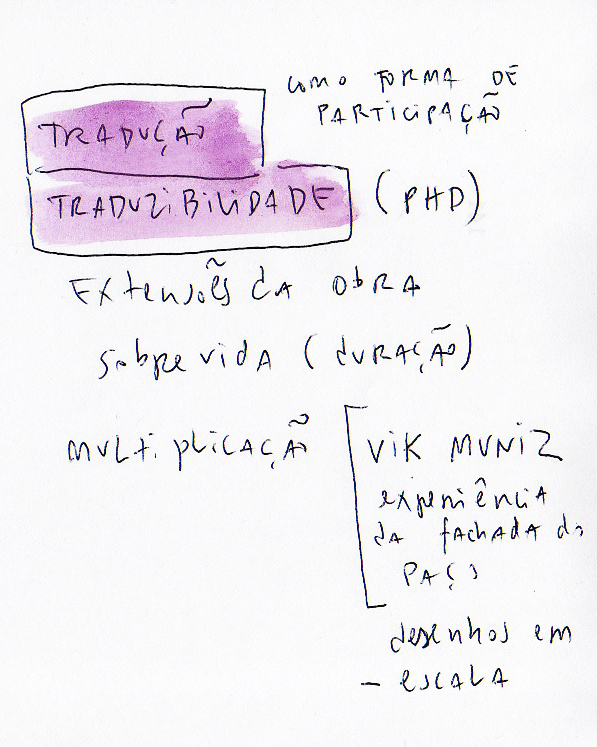 como FORMA DE
PARTICIPAÇÃO
TRADUÇÃO
TRADUZIBILIDADE (PHD)
Extensões da OBRA
Sobrevida (duração)
multiplicação
VIK MUNIZ
experiência
da fachada do
PAÇO
desenhos em
- escala